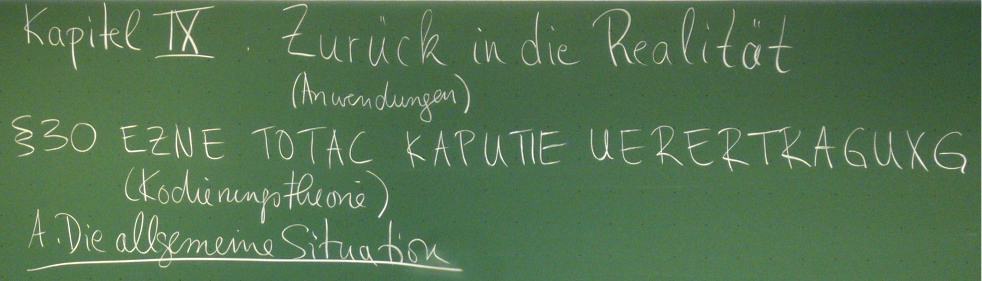 Kapitel IX. Zurück in die Realität
(Anwendungen)
§30 EZNE TOTAC KAPUTTE UERERTRAGUXG
(Kodierungstheorie)
A. Die allgemeine Situation